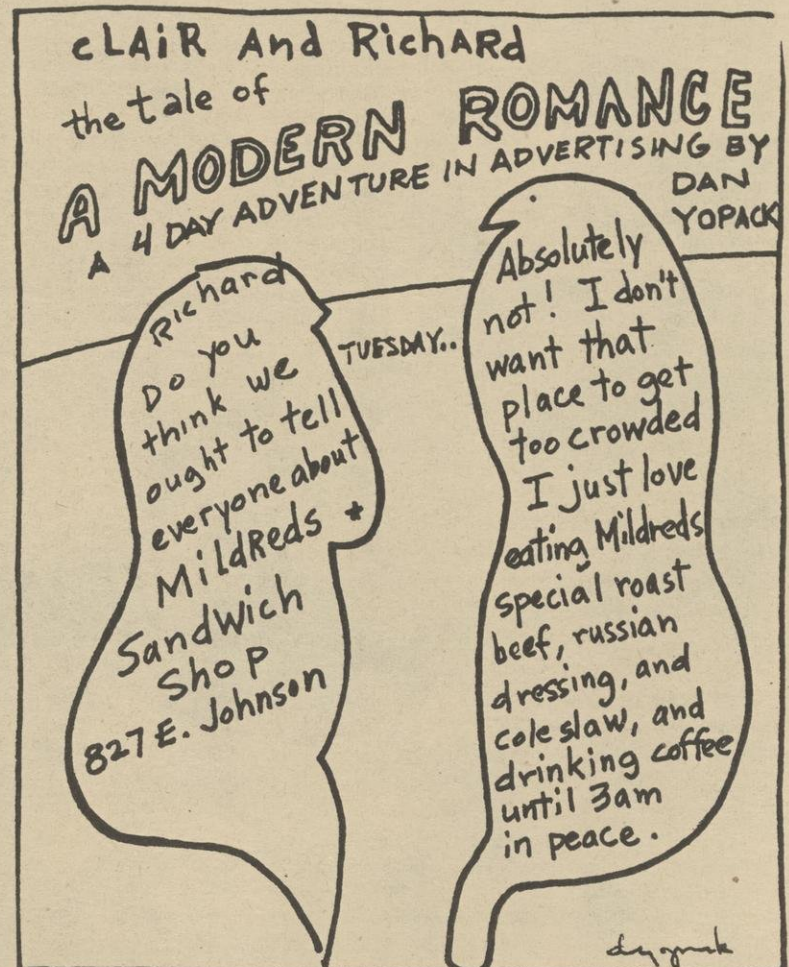 cLAiR And RichARD
the tale of
A MODERN ROMANCE
A 4 DAY ADVENTURE IN ADVERTISING BY
DAN
YOPACK
Richard
Do you
think we
ought to tell
everyone about
MildReds *
Sandwich
Shop
827 E. Johnson
TUESDAY..
Absolutely
not! I don't
want that
place to get
too crowded
I just love
eating Mildreds
special roast
beef, russian
dressing, and
cole slaw, and
drinking coffee
until 3am
in peace.